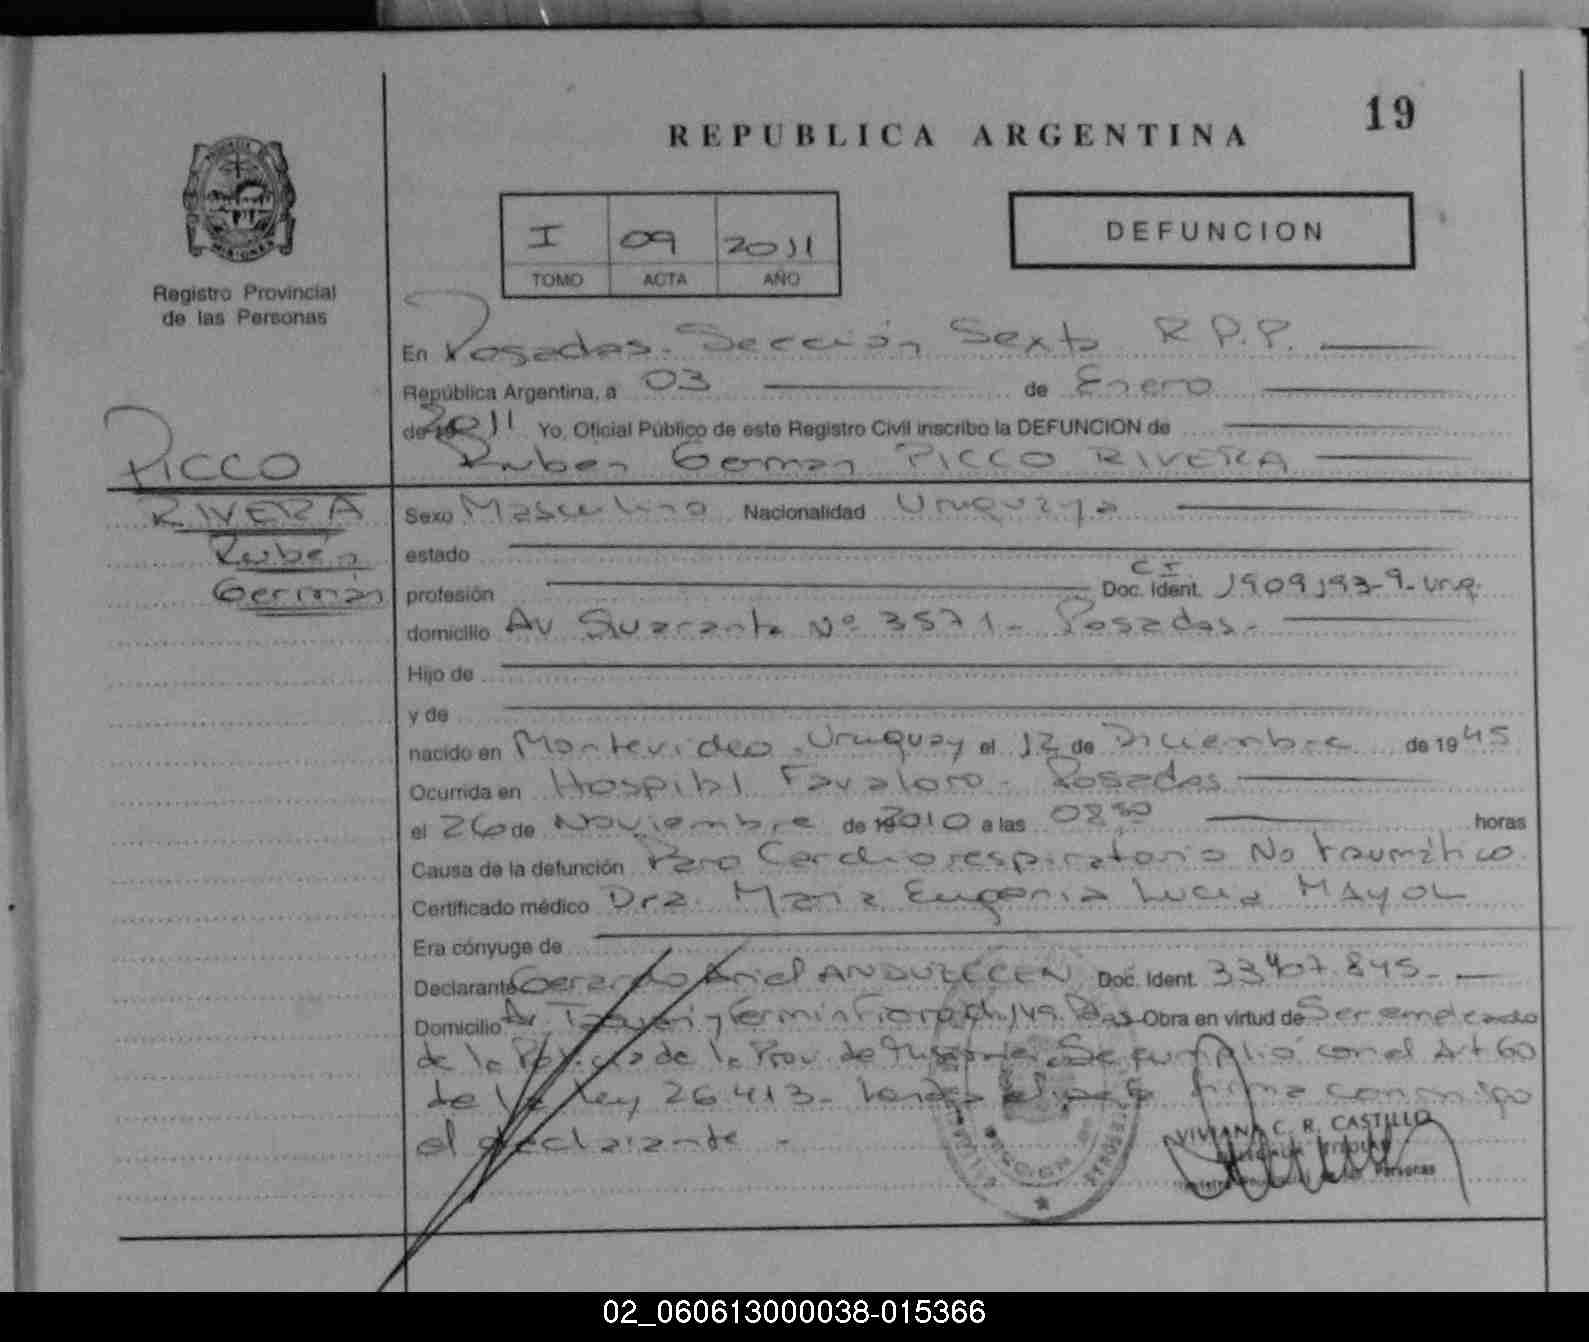 REPUBLICA ARGENTINA
19
I 09 2011
TOMO ACTA AÑO
DEFUNCION
Registro Provincial
de las Personas
En Posadas. Sección Sexta R.P.P.
República Argentina, a 03 de Enero
de 2011 Yo, Oficial Público de este Registro Civil inscribo la DEFUNCION de
Ruben German PICCO RIVERA
PICCO
RIVERA
Rubén
Germán
Sexo Masculino Nacionalidad Uruguaya
estado
profesión Doc. Ident. CI 1909193-9-Urug.
domicilio Av Quaranta Nº 3571 - Posadas -
Hijo de
y de
nacido en Montevideo, Uruguay el 12 de Diciembre de 1945
Ocurrida en Hospital Favaloro - Posadas
el 26 de Noviembre de 2010 a las 08 30 horas
Causa de la defunción Paro Cardiorespiratorio No traumático.
Certificado médico Dra. Maria Eugenia Lucia MAYOL
Era cónyuge de
Declarante Gerardo Ariel Doc. Ident. 33407.845-
Domicilio Av. y Fermin 149. Pdas Obra en virtud de Ser empleado
de la Policia de la Prov. de Misiones. Se cumplió con el Art 60
de la Ley 26.413- firma conmigo
el declarante -
VIVIANA C. R. CASTILLO
TITULAR
de las Personas
MISIONES
02_060613000038-015366